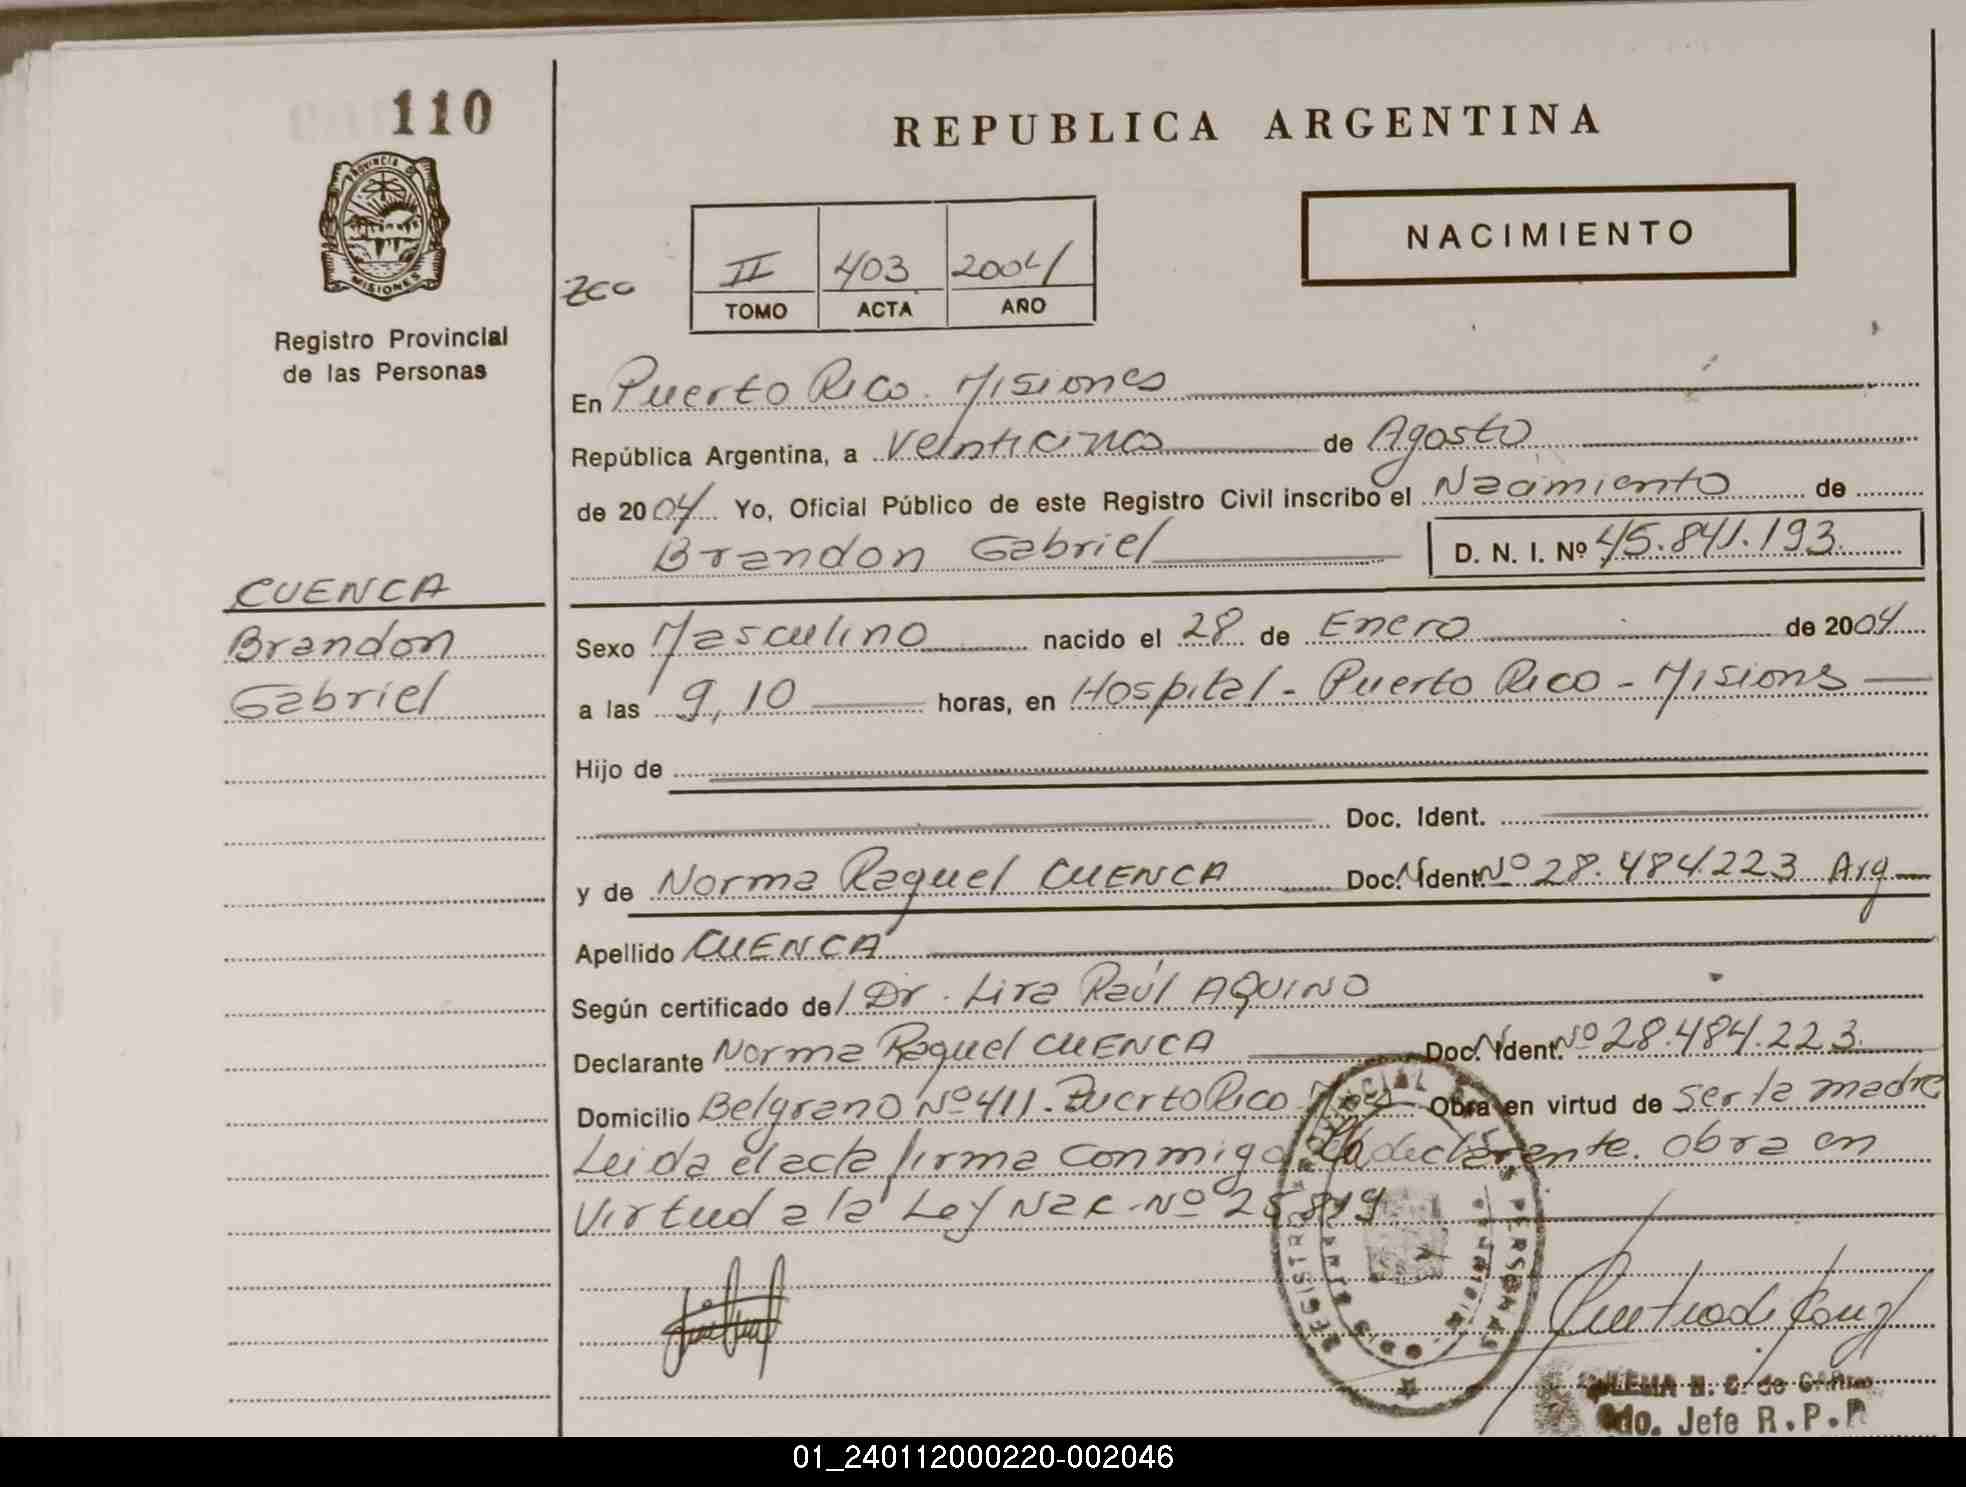 110
PROVINCIA DE
MISIONES
Registro Provincial
de las Personas
CUENCA
Brandon
Gabriel
REPUBLICA ARGENTINA
NACIMIENTO
II 403 2004
TOMO ACTA AÑO
En Puerto Rico. Misiones
República Argentina, a Veinticinco de Agosto
de 2004 Yo, Oficial Público de este Registro Civil inscribo el Nacimiento de
Brandon Gabriel D. N. I. Nº 45.841.193
Sexo Masculino nacido el 28 de Enero de 2004
a las 9,10 horas, en Hospital - Puerto Rico - Misions
Hijo de
Doc. Ident.
y de Norma Raquel CUENCA Doc. Ident. Nº 28.484.223 Arg
Apellido CUENCA
Según certificado del Dr. Lira Raúl AQUINO
Declarante Norma Raquel CUENCA Doc. Ident. Nº 28.484.223
Domicilio Belgrano Nº 411. Puerto Rico Obra en virtud de ser la madre
Leida el acta firma conmigo la declarante. Obra en
Virtud a la Ley Nac. Nº 25.819
PERSONAS
Jefe R.P.P.
01_240112000220-002046